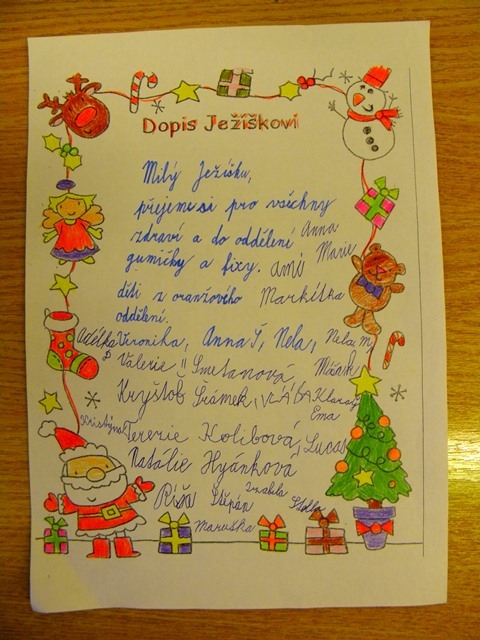 Dopis Ježíškovi
Milý Ježíšku,
přejeme si pro všechny
zdraví a do oddělení Anna
gumičky a fixy. Marie
děti z oranžového Markétka
oddělení.
Adélka Veronika, Anna Š, Nela, Nela M
Valerie Smetanová, 
Kryštof Šrámek, VÁĎA Klara
Ema
Kristýna Terezie Kolibová, Lucas
Natálie Hyánková
Ríša Štěpán Izabela Stella
Maruška